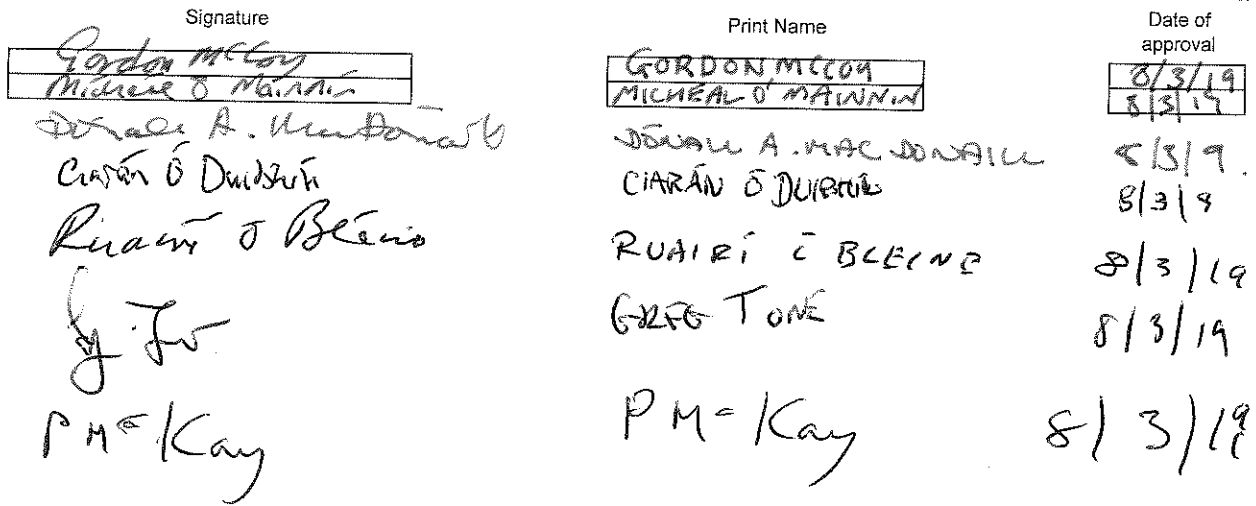 Signature Print Name Date of
approval
Gordon McCoy GORDON MCCOY 8/3/19
Micheál Ó Mainnín MICHEAL Ó MAINNÍN 8/3/19
Dónall A. MacDónaill DÓNALL A. MAC DONAILL 8/3/9.
Ciarán Ó Duibhín CIARÁN Ó DUIBHÍN 8/3/9
Ruairí Ó Bléine RUAIRÍ Ó BLÉINE 8/3/19
GREG TONE 8/3/19
P McKay P McKay 8/3/19